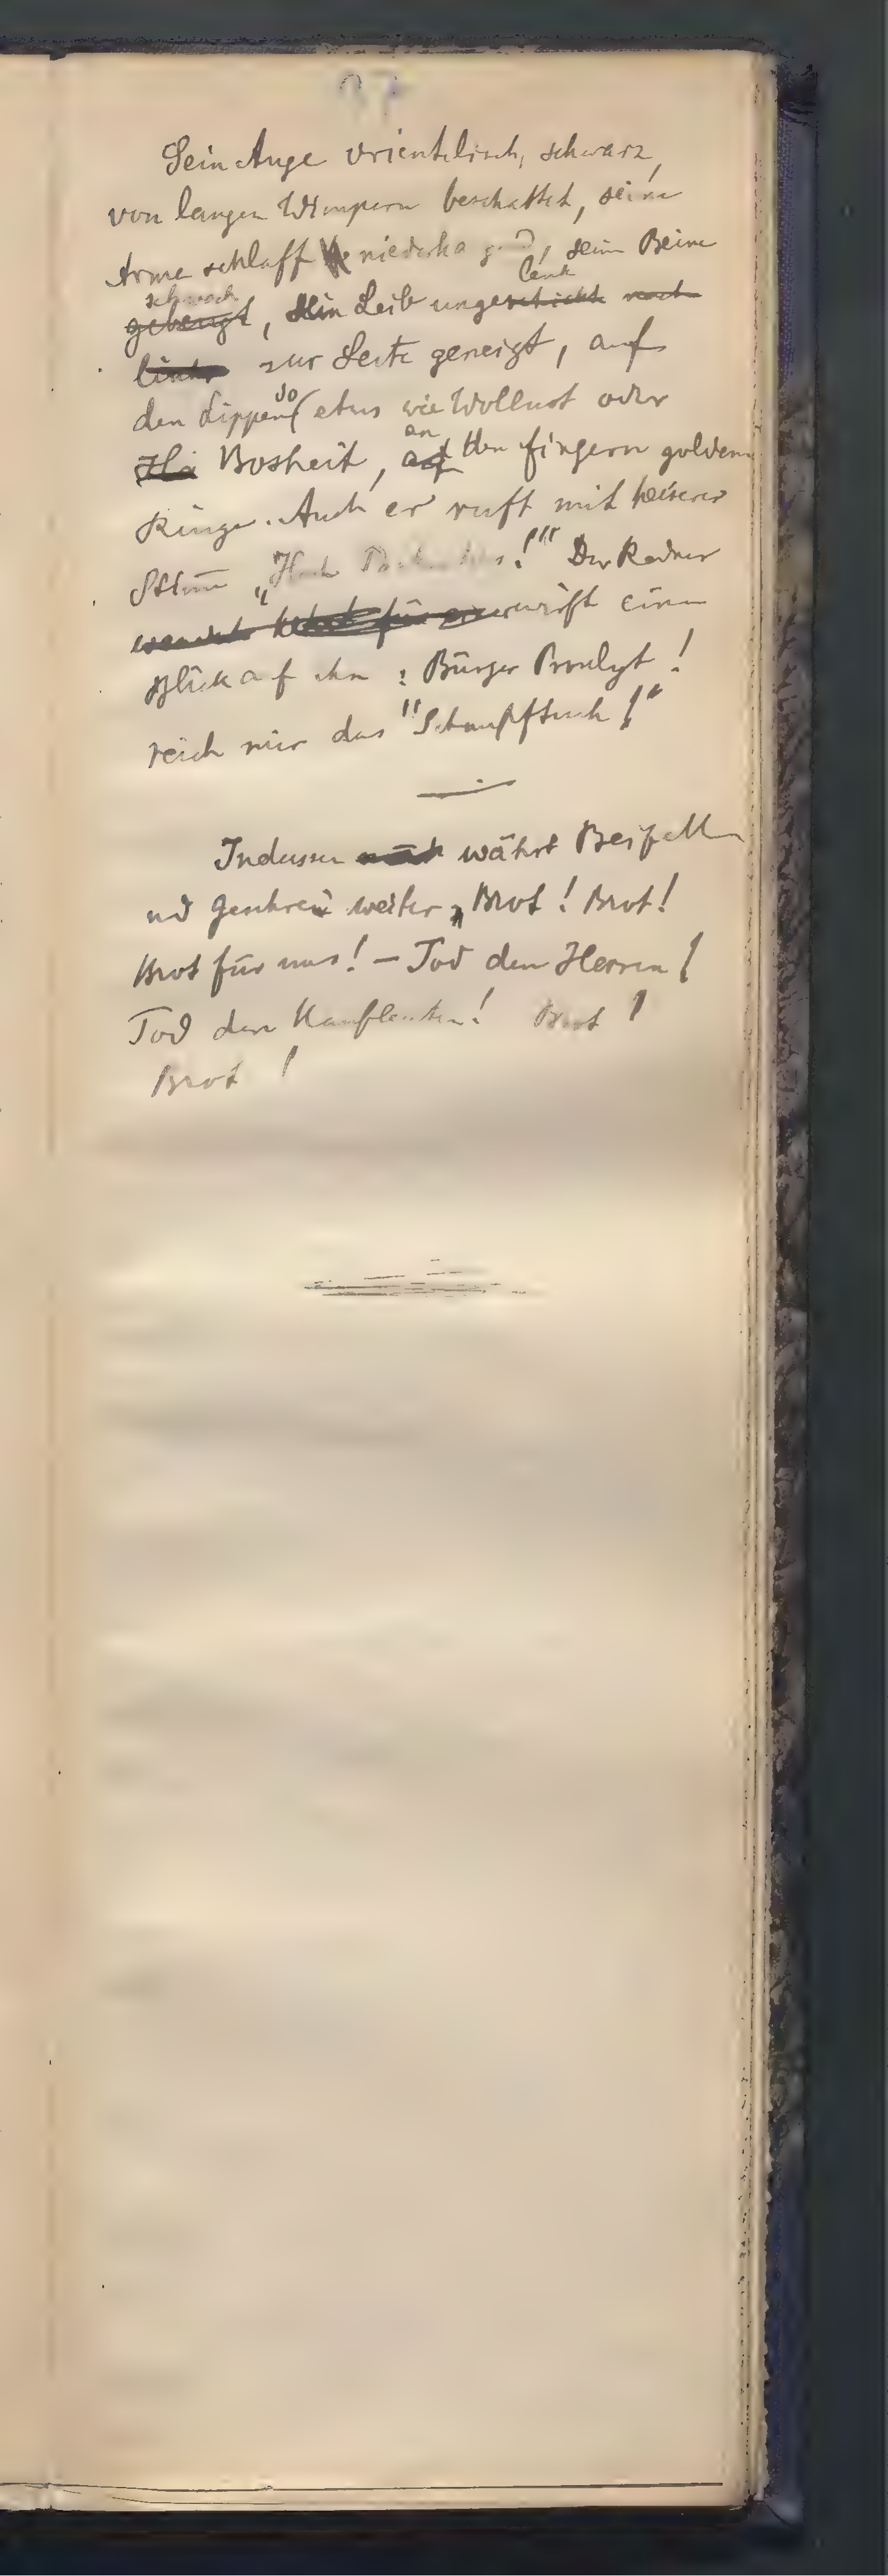 37
Sein Auge orientalisch, schwarz,
von langen Wimpern beschattet, seine
Arme schlaff niederha gend, sein Beine
schwach lenk
gebeugt, sein Leib ungeschickt nach
links zur Seite geneigt, auf
den Lippen so etwas wie Wollust oder
an
Bosheit, auf den Fingern goldene
Ringe. Auch er ruft mit heiserer
Stimme „Hoch !" Der Redner
wendet wirft einen
Blick auf ihn : Bürger !
reich mir das "Schnupftuch !"
Indessen währt Beifall
und Geschrei weiter „Brot ! Brot !
Brot für uns ! – Tod den Herren !
Tod den Kaufleuten ! Brot !
Brot !